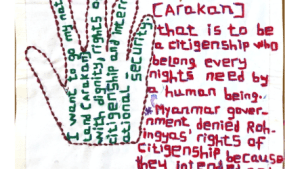 I want to go my nat
Land (Arakan)
with dignity, rights o
citizenship and intern
ational security
[Arakan]
that is to be
a citigenship who
belong every
rights need by
a human being.
*Myanmar gover-
nment denied Roh-
ingyas' rights of
citigenship because
they